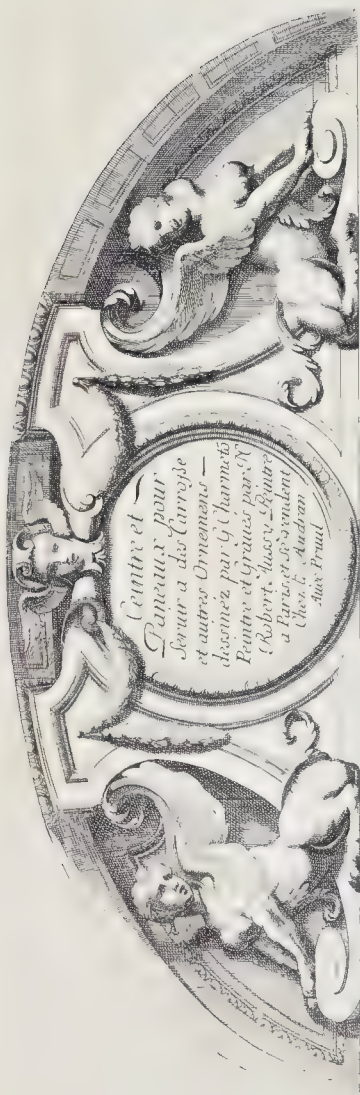 Ceintre et
Paneaux pour
Seruir a des Carrosse
et autres Ornemens
dessinez par G. Charmeton
Peintre et Graués par N.
Robert. Ausost Peintre
a Paris et se vendent
Chez. E. Audran
Auec Priuil